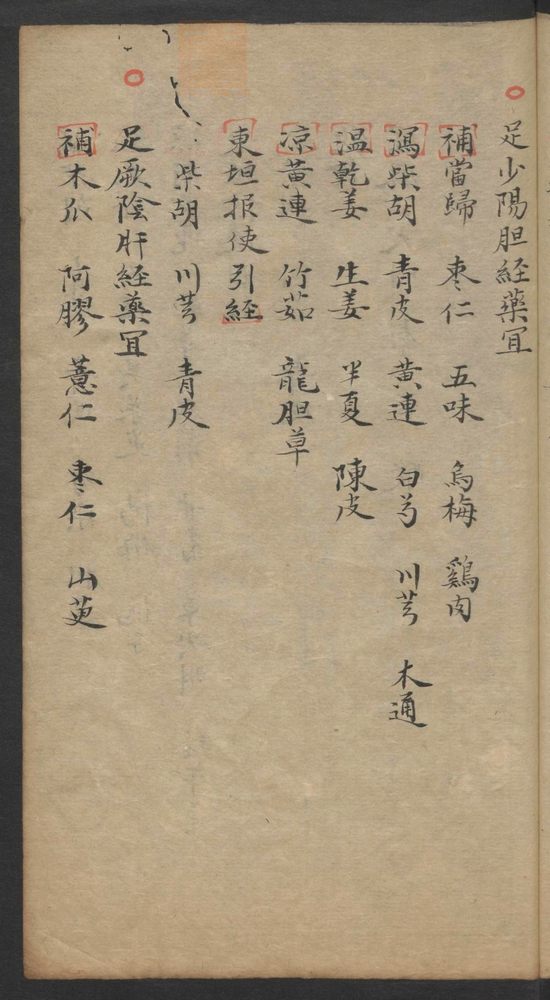 足少陽胆経藥冝
補當歸 棗仁 五味 烏梅 鷄肉
瀉柴胡 青皮 黃連 白芍 川芎 木通
温乾姜 生姜 半夏 陳皮
凉黃連 竹茹 龍胆草
東垣报使引経
柴胡 川芎 青皮
足厥陰肝経藥冝
補木瓜 阿膠 薏仁 棗仁 山萸